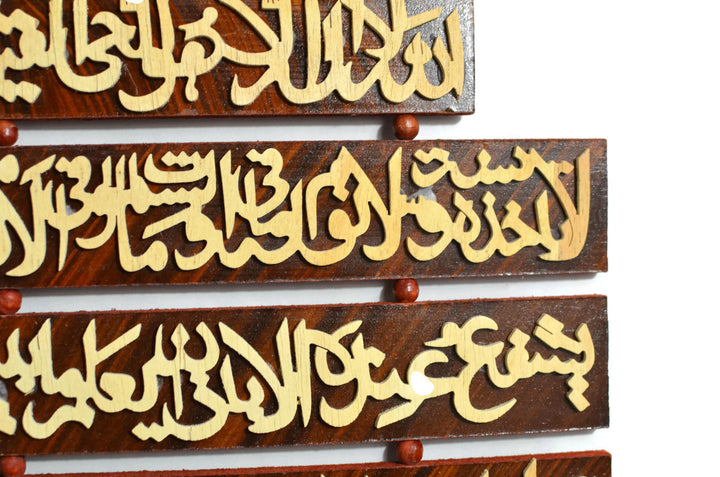 الله لا اله الا هو الحي القيو
لا تاخذه سنة ولا نوم له ما في السموات وما في الار
يشفع عنده الا باذنه يعلم ما بين